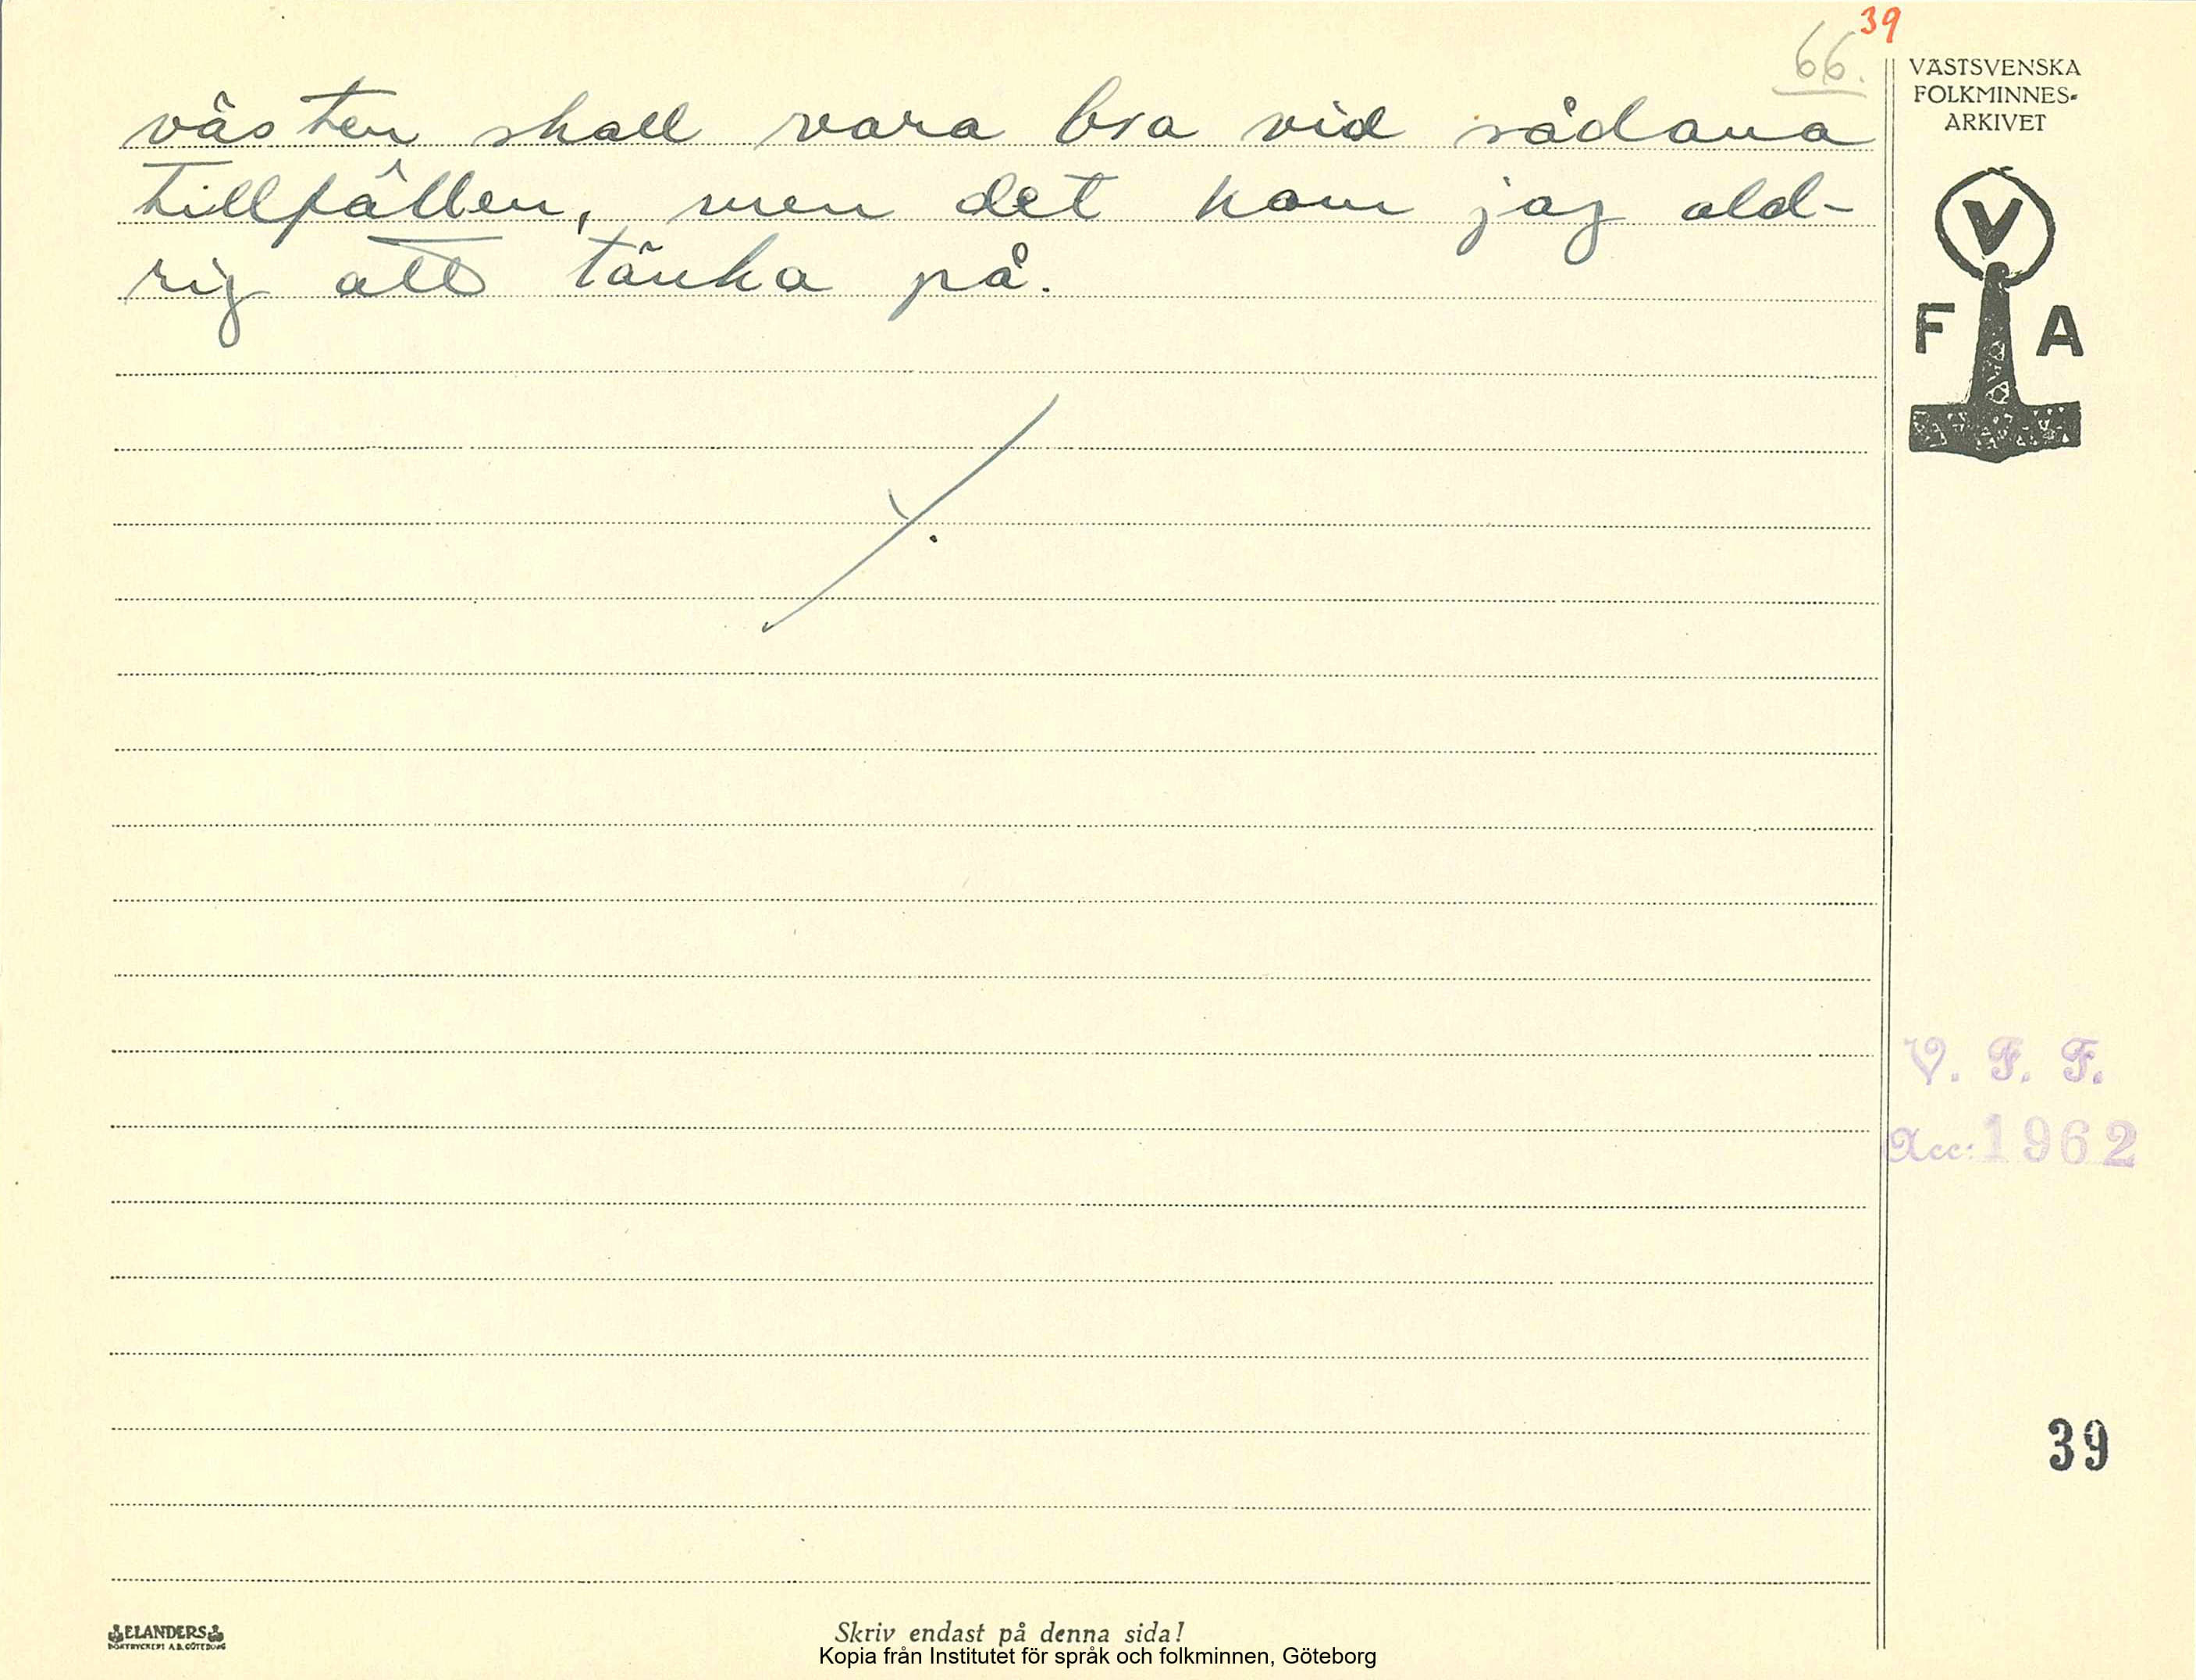 39
66.
VÄSTSVENSKA
FOLKMINNES-
ARKIVET
västen skall vara bra vid sådana
tillfällen, men det kom jag ald-
rig att tänka på.
V
F A
V. F. F.
Acc: 1962
39
ELANDERS
BOKTRYCKERI A.B. GÖTEBORG
Skriv endast på denna sida!
Kopia från Institutet för språk och folkminnen, Göteborg